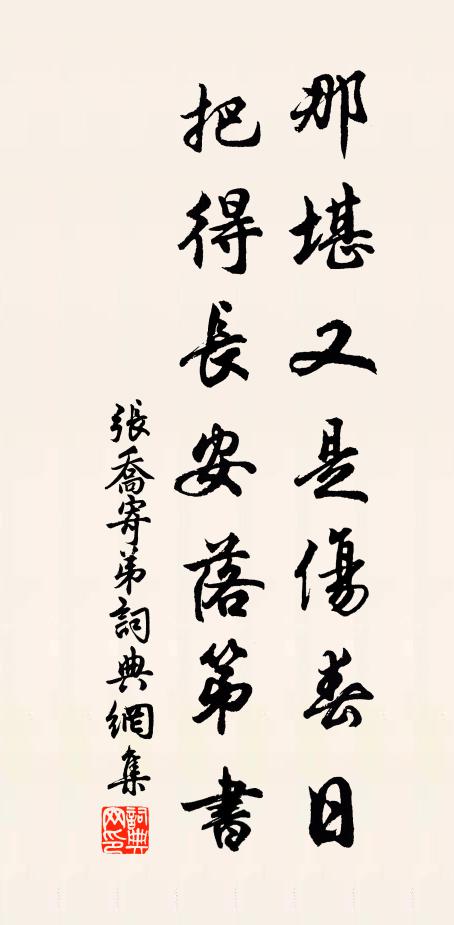 那堪又是傷春日
把得長安落第書
張喬寄弟詞典網集
詞典網印